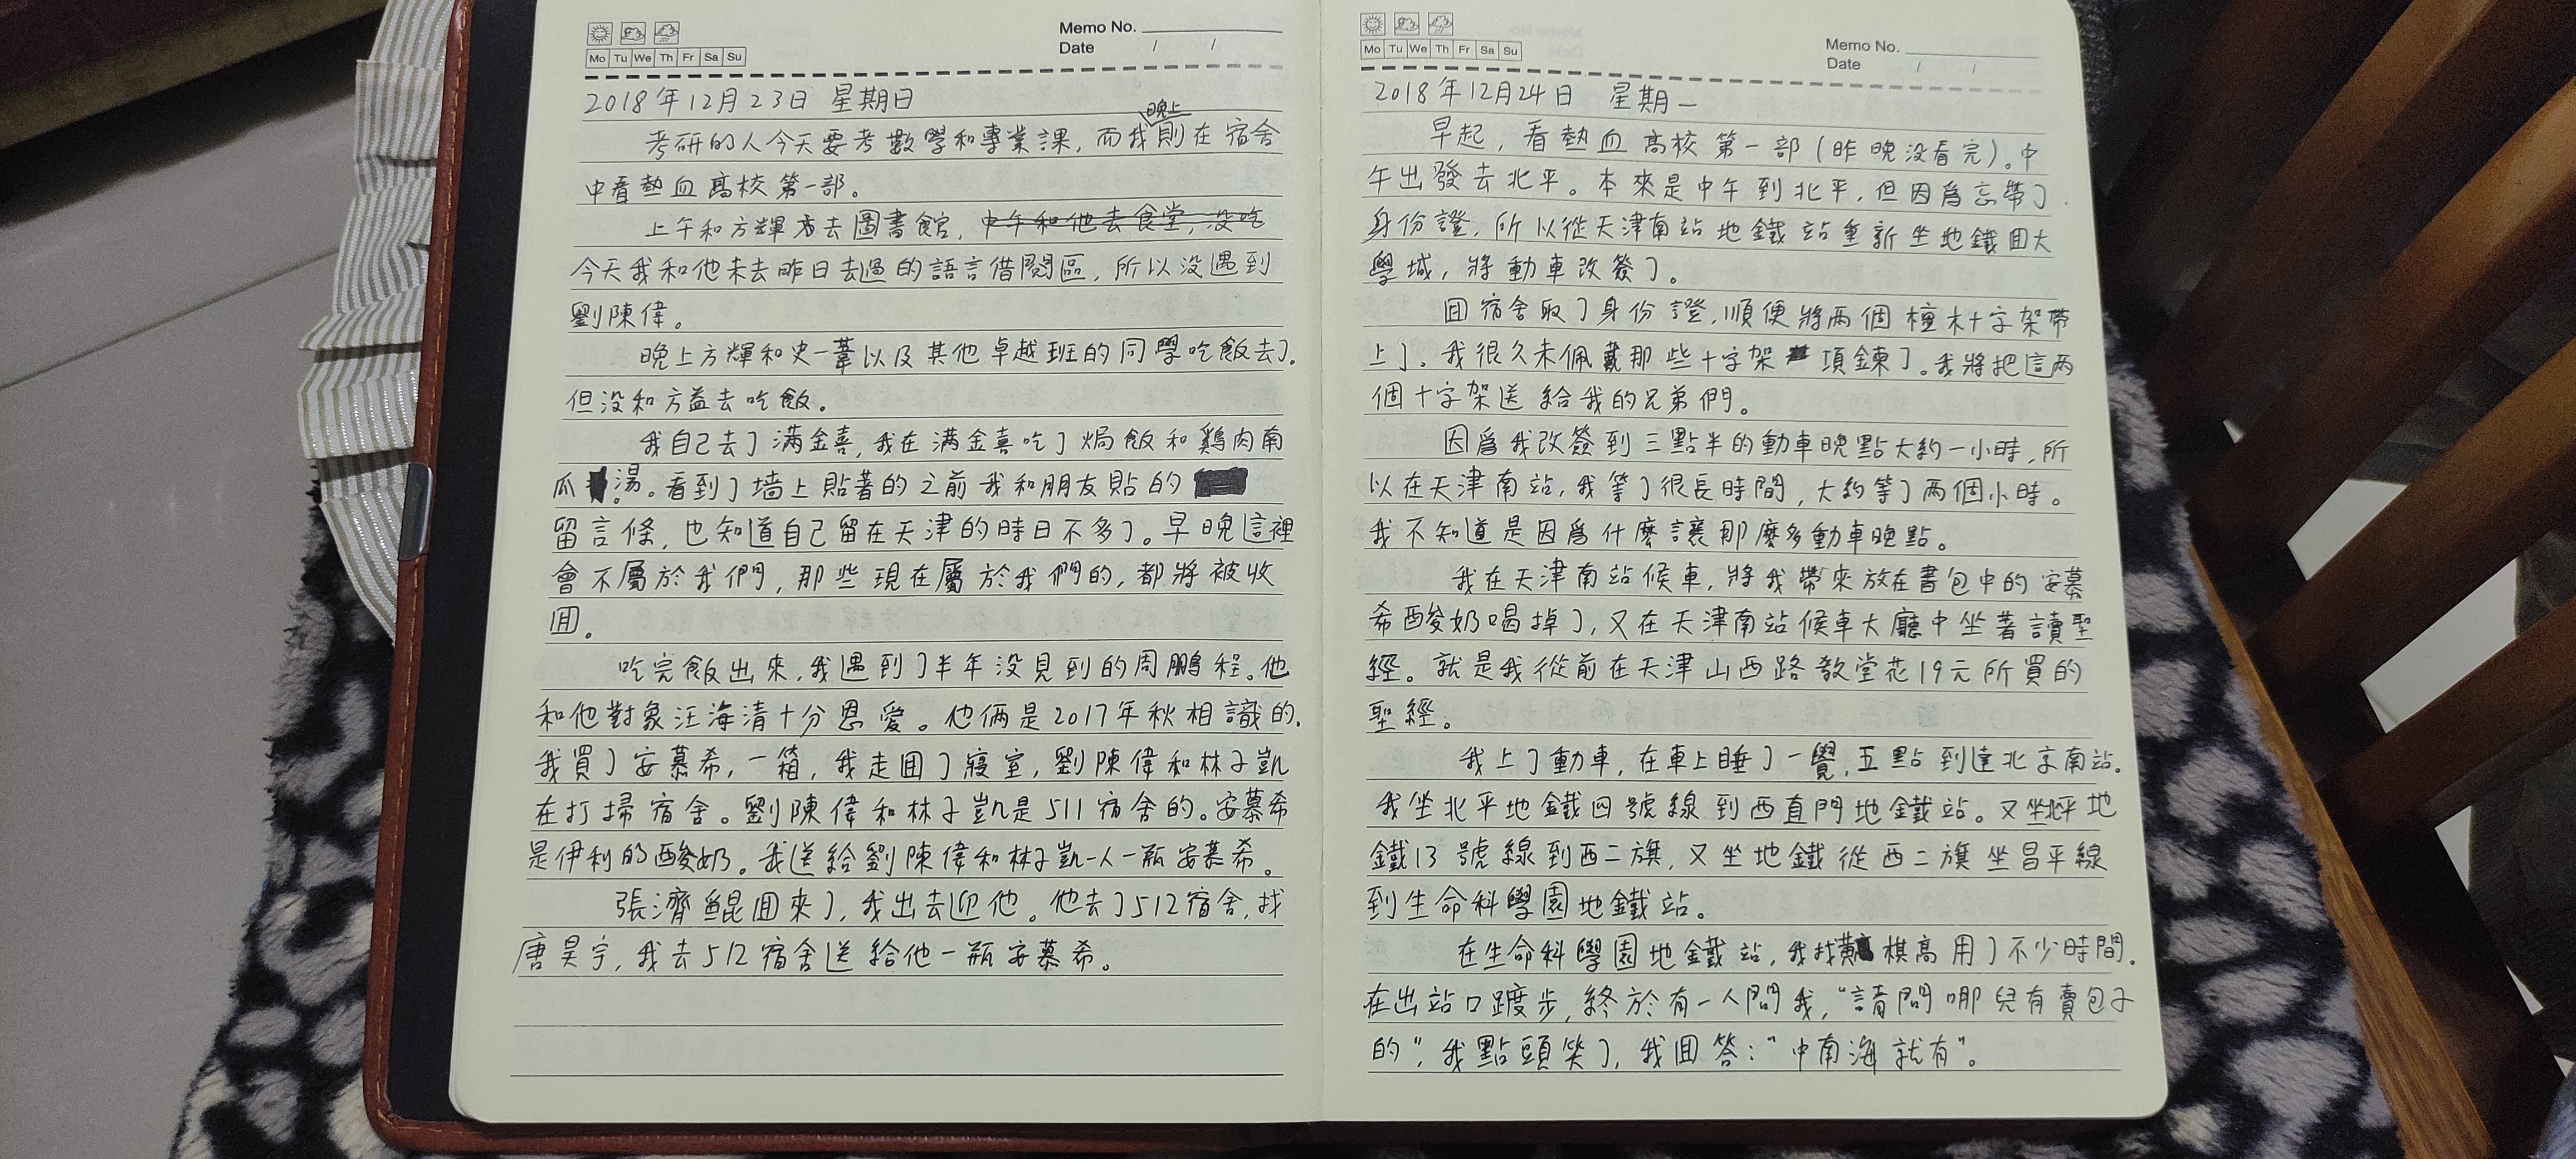 Memo No.
Mo Tu We Th Fr Sa Su
Date / /
2018年12月23日 星期日
晚上
考研的人今天要考數學和專業課,而我則在宿舍
中看熱血高校第一部。
上午和方輝去圖書館,中午和他去食堂,没吃
今天我和他未去昨日去過的語言借閱區,所以没遇到
劉陳偉。
晚上方輝和史一葦以及其他卓越班的同學吃飯去了.
但没和方益去吃飯。
我自己去了满金喜,我在满金喜吃了焗飯和鷄肉南
瓜湯。看到了墙上貼著的之前我和朋友貼的
留言條,也知道自己留在天津的時日不多了。早晚這裡
會不屬於我們,那些現在屬於我們的,都將被收
囬。
吃完飯出來,我遇到了半年没見到的周鵬程。他
和他對象汪海清十分恩愛。他倆是2017年秋相識的.
我買了安慕希,一箱,我走囬了寢室,劉陳偉和林子凱
在打掃宿舍。劉陳偉和林子凱是511宿舍的。安慕希
是伊利的酸奶。我送給劉陳偉和林子凱一人一瓶安慕希。
張濟鲲囬來了,我出去迎他。他去了512宿舍,找
唐昊宇,我去512宿舍送給他一瓶安慕希。
Memo No.
Mo Tu We Th Fr Sa Su
Date / /
2018年12月24日 星期一
早起,看熱血高校第一部(昨晚没看完)。中
午出發去北平。本來是中午到北平,但因爲忘帶了
身份證,所以從天津南站地鐵站重新坐地鐵囬大
學城,將動車改簽了。
囬宿舍取了身份證,順便將兩個檀木十字架帶
上了。我很久未佩戴那些十字架項鍊了。我將把這兩
個十字架送給我的兄弟們。
因爲我改簽到三點半的動車晚點大約一小時,所
以在天津南站,我等了很長時間,大約等了兩個小時。
我不知道是因爲什麽讓那麽多動車晚點。
我在天津南站候車,將我帶來放在書包中的安慕
希酸奶喝掉了,又在天津南站候車大廳中坐著讀聖
經。就是我從前在天津山西路教堂花19元所買的
聖經。
我上了動車,在車上睡了一覺,五點到達北京南站.
我坐北平地鐵四號線到西直門地鐵站。又坐北平地
鐵13號線到西二旗,又坐地鐵從西二旗坐昌平線
到生命科學園地鐵站。
在生命科學園地鐵站,我找黄棋高用了不少時間.
在出站口踱步,終於有一人問我,“請問哪兒有賣包子
的”,我點頭笑了,我囬答:“中南海就有”。